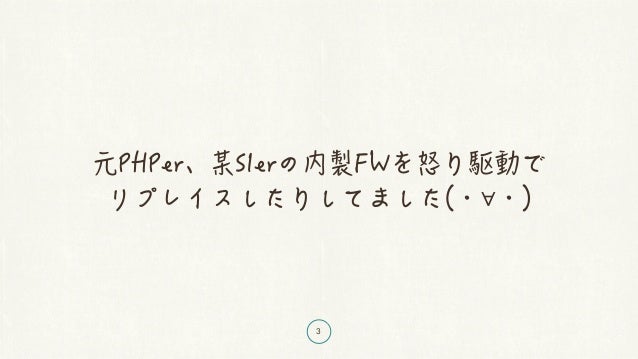 元PHPer、某SIerの内製FWを怒り駆動で
リプレイスしたりしてました(・∀・)
3